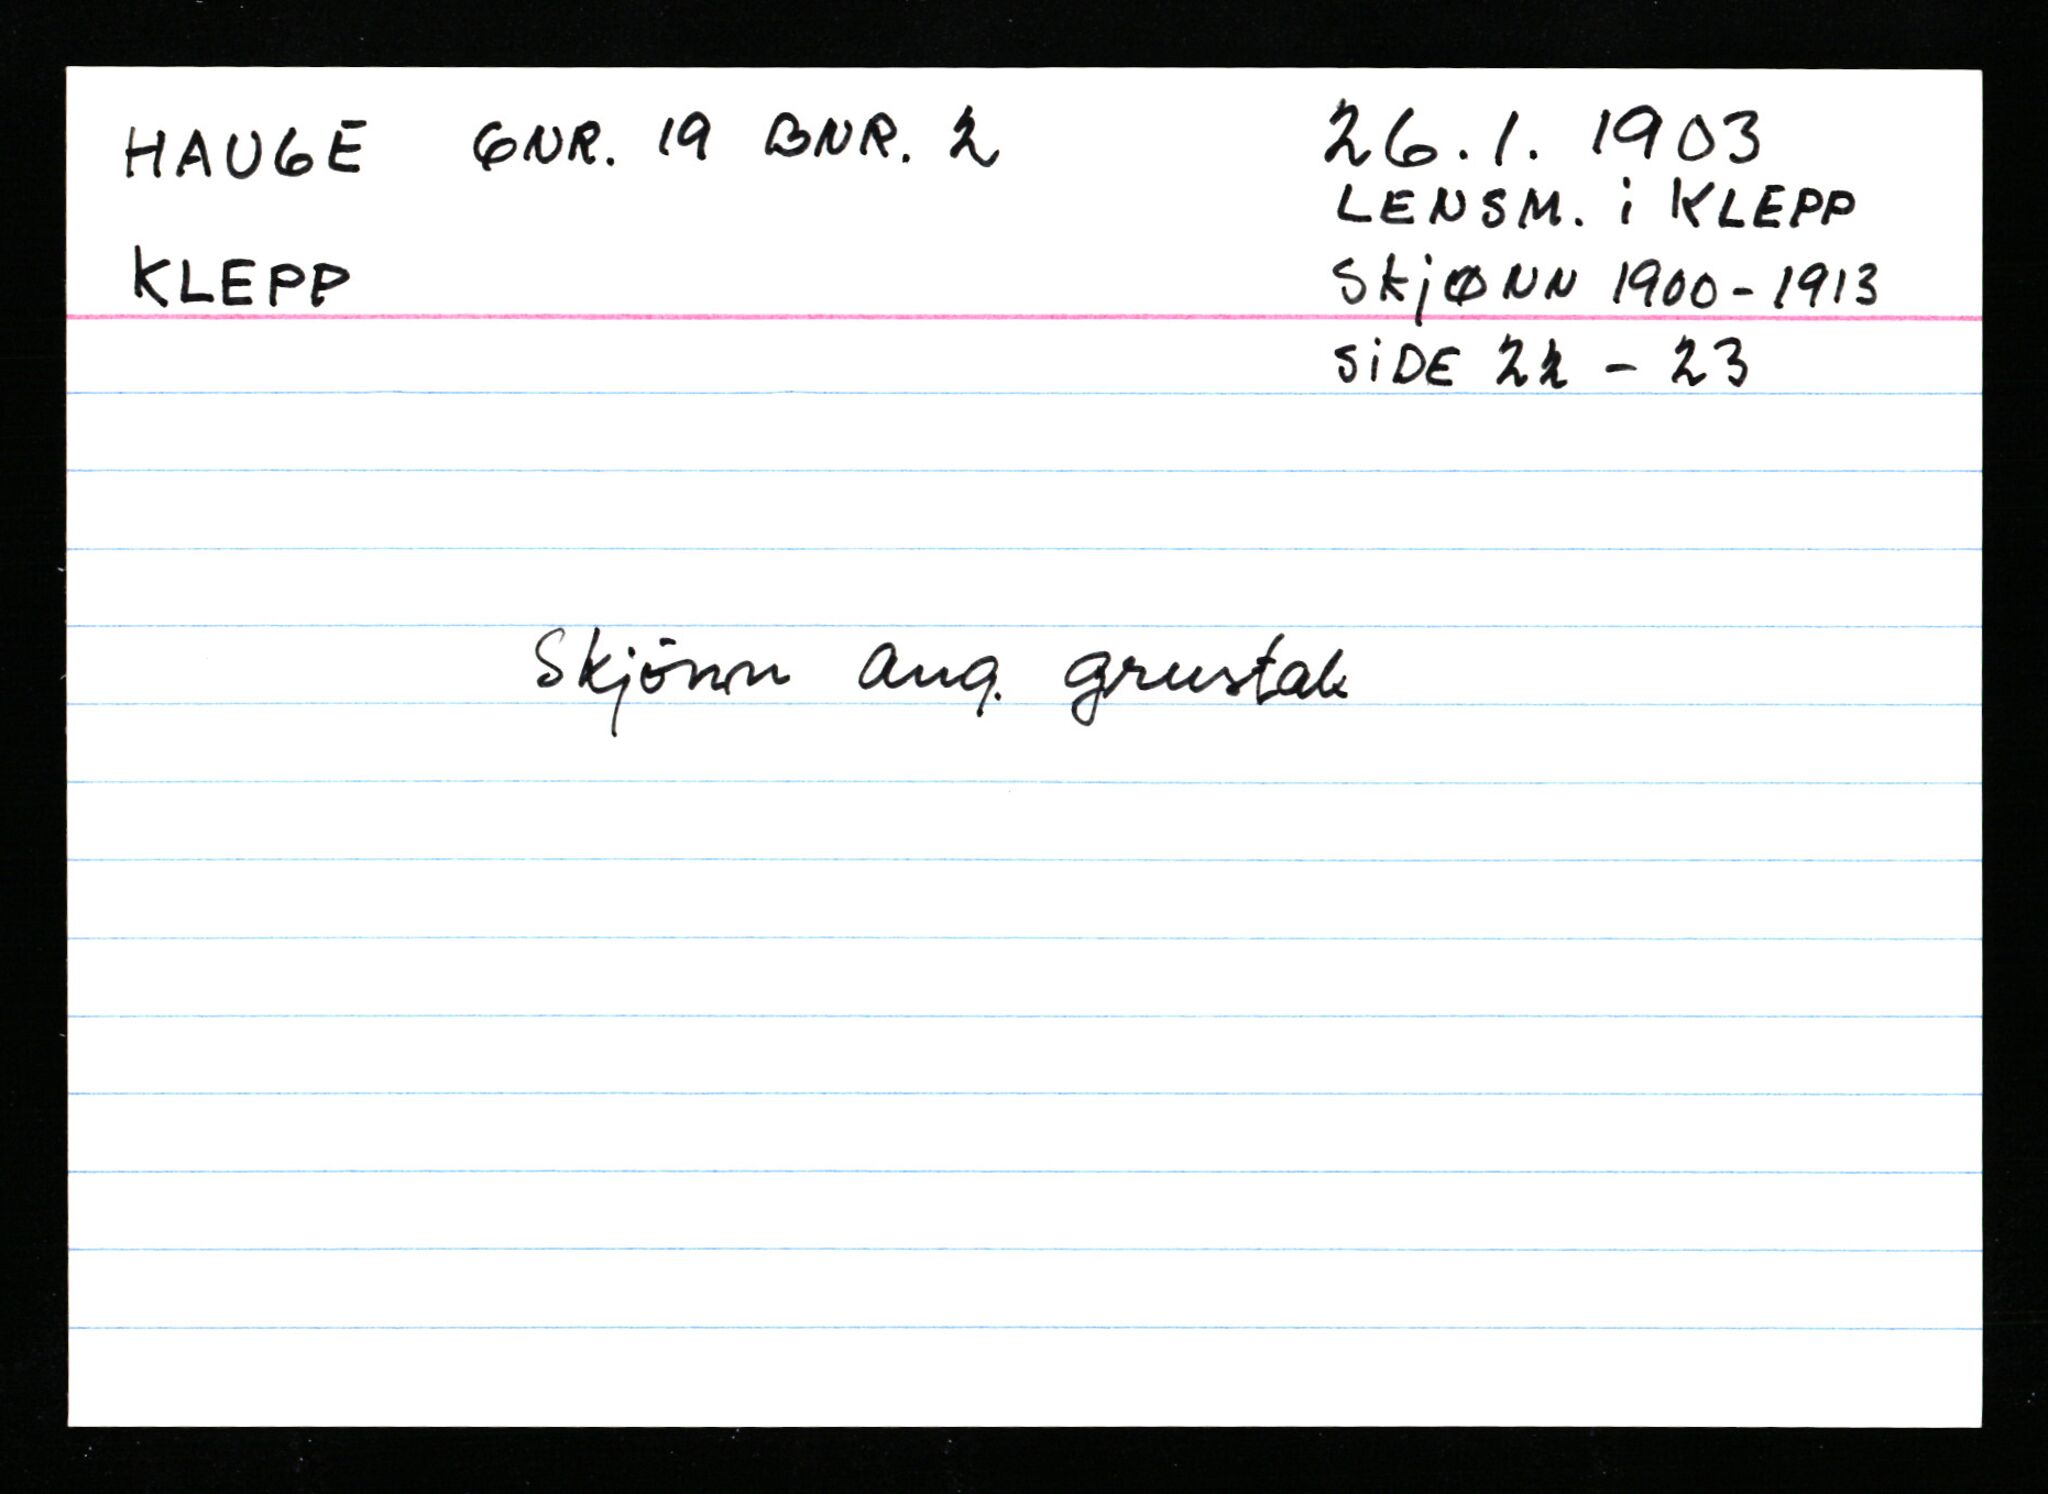 HAUGE GNR. 19 BNR. 2
KLEPP
26.1.1903
LENSM. i KLEPP
SKjØNN 1900-1913
SiDE 22 - 23
Skjönn ang. grustak